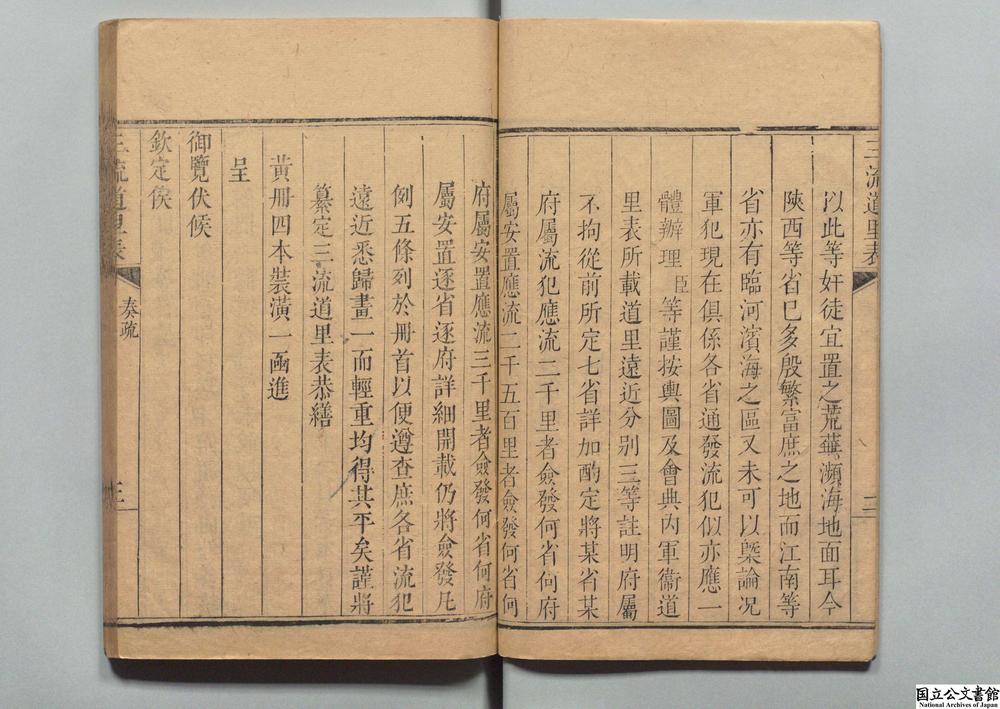 三流道里表
二
以此等奸徒宜置之荒蕪瀕海地面耳今
陝西等省已多殷繁富庶之地而江南等
省亦有臨河濱海之區又未可以槩論况
軍犯現在俱係各省通發流犯似亦應一
體辦理臣等謹按輿圖及會典內軍衞道
里表所載道里遠近分別三等註明府屬
不拘從前所定七省詳加酌定將某省某
府屬流犯應流二千里者僉發何省何府
屬安置應流二千五百里者僉發何省何
府屬安置應流三千里者僉發何省何府
屬安置逐省逐府詳細開載仍將僉發凡
例五條列於册首以便遵查庶各省流犯
遠近悉歸畫一而輕重均得其平矣謹將
纂定三流道里表恭繕
黃册四本裝潢一凾進
呈
御覽伏候
欽定俟
三流道里表
奏疏
三
国立公文書館
National Archives of Japan